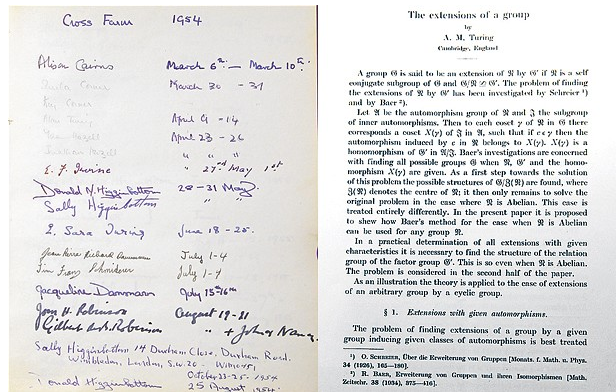 Cross Farm 1954
Alison Cairns March 6th — March 10th.
March 30 - 31
April 9 - 14
April 23 - 26
E. F. Irvine " 27th May 1st
Donald N. Higginbottom 28 - 31 May
Sally Higginbottom "
E. Sara Turing June 18 - 25.
Jean Pierre Richard Dammann July 1-4
July 1-4
Jacqueline Dammann July 15-16th
Joan H. Robinson August 19-21
Gilbert de B. Robinson " + John & Nancy
Sally Higginbottom 14 Durham Close, Durham Road.
Wimbledon, London, S.W.20
October 23-25 - 1954
Donald Higginbottom 25 August 1954.
The extensions of a group
by
A. M. Turing
Cambridge, England
A group 𝔊 is said to be an extension of 𝔑 by 𝔊′ if 𝔑 is a self
conjugate subgroup of 𝔊 and 𝔊/𝔑 ≅ 𝔊′. The problem of finding
the extensions of 𝔑 by 𝔊′ has been investigated by Schreier ¹)
and by Baer ²).
Let 𝔄 be the automorphism group of 𝔑 and ℑ the subgroup
of inner automorphisms. Then to each coset γ of 𝔑 in 𝔊 there
corresponds a coset X(γ) of ℑ in 𝔄, such that if c ε γ then the
automorphism induced by c in 𝔑 belongs to X(γ). X(γ) is a
homomorphism of 𝔊′ in 𝔄/ℑ. Baer's investigations are concerned
with finding all possible groups 𝔊 when 𝔑, 𝔊′ and the homo-
morphism X(γ) are given. As a first step towards the solution
of this problem the possible structures of 𝔊/ℨ(𝔑) are found, where
ℨ(𝔑) denotes the centre of 𝔑; it then only remains to solve the
original problem in the case where 𝔑 is Abelian. This case is
treated entirely differently. In the present paper it is proposed
to shew how Baer's method for the case when 𝔑 is Abelian
can be used for any group 𝔑.
In a practical determination of all extensions with given
characteristics it is necessary to find the structure of the relation
group of the factor group 𝔊′. This is so even when 𝔑 is Abelian.
The problem is considered in the second half of the paper.
As an illustration the theory is applied to the case of extensions
of an arbitrary group by a cyclic group.
§ 1. Extensions with given automorphisms.
The problem of finding extensions of a group by a given
group inducing given classes of automorphisms is best treated
¹) O. Schreier, Über die Erweiterung von Gruppen [Monats. f. Math. u. Phys.
34 (1926), 165—180].
²) R. Baer, Erweiterung von Gruppen und ihren Isomorphismen [Math.
Zeitschr. 38 (1934), 375—416].